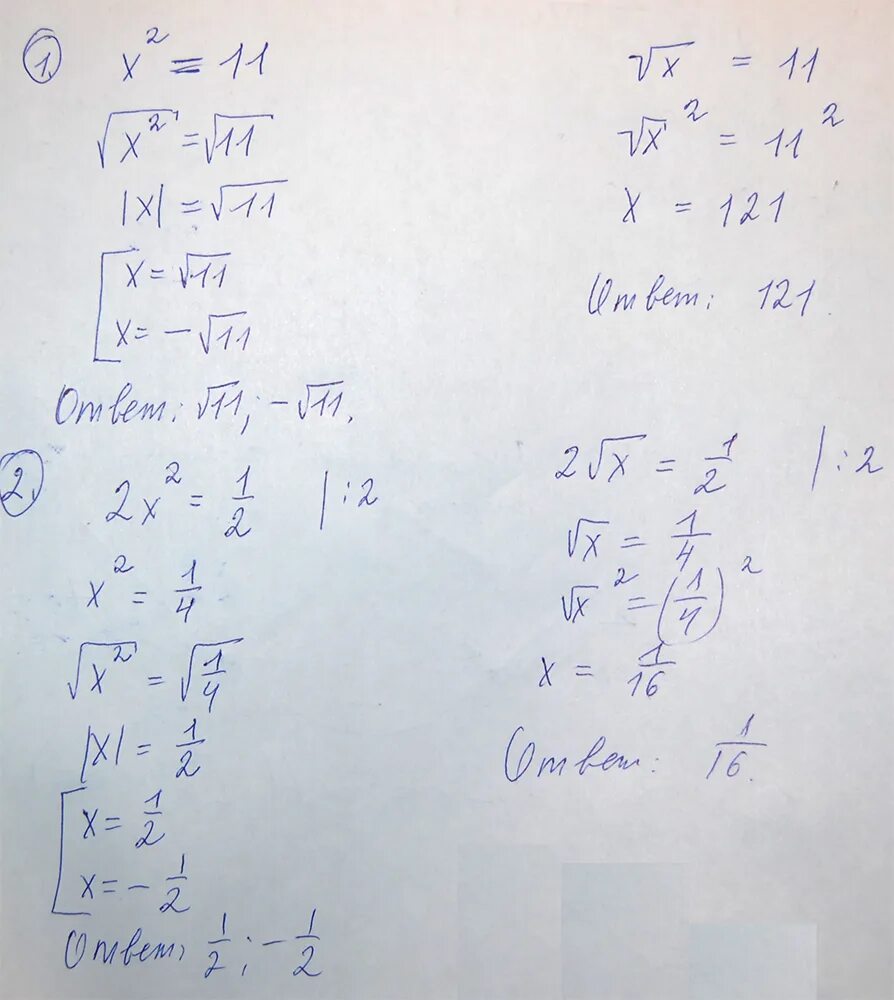 1. x² = 11
√x² = √11
|x| = √11
[ x = √11
x = -√11
Ответ: √11; -√11.
√x = 11
√x² = 11²
x = 121
Ответ: 121
2. 2x² = 1/2 | :2
x² = 1/4
√x² = √1/4
|x| = 1/2
[ x = 1/2
x = - 1/2
Ответ: 1/2; - 1/2
2√x = 1/2 | :2
√x = 1/4
√x² = (1/4)²
x = 1/16
Ответ: 1/16.